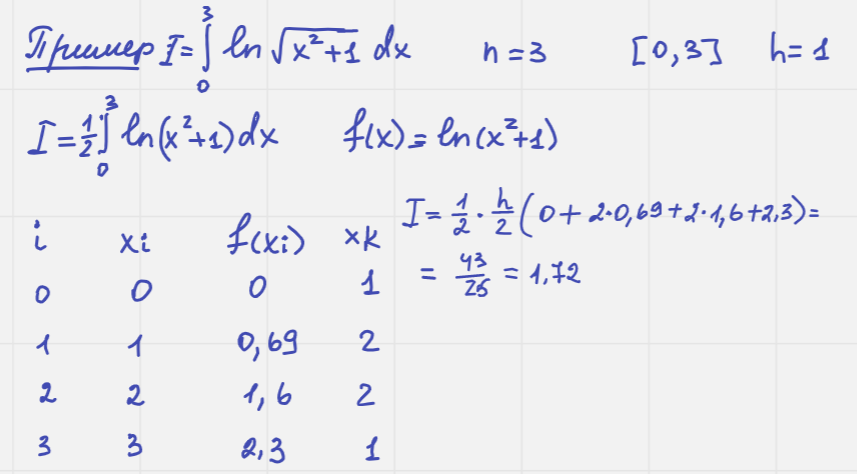 Пример I = ∫₀³ ln √(x²+1) dx n = 3 [0,3] h = 1
I = 1/2 ∫₀³ ln(x²+1) dx f(x) = ln(x²+1)
i xi f(xi) xk
0 0 0 1
1 1 0,69 2
2 2 1,6 2
3 3 2,3 1
I = 1/2 · h/2 (0 + 2·0,69 + 2·1,6 + 2,3) =
= 43/25 = 1,72